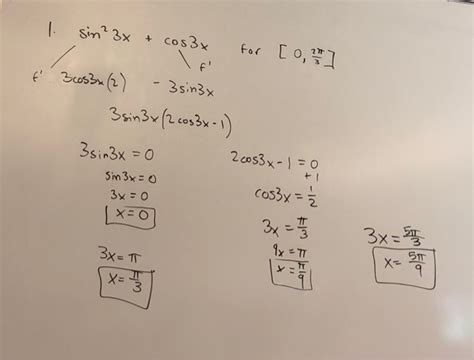 1. sin² 3x + cos3x for [0, 2π/3]
f' f'
3cos3x(2) - 3sin3x
3sin3x(2cos3x-1)
3sin3x = 0
sin3x = 0
3x = 0
x = 0
3x = π
x = π/3
2cos3x - 1 = 0
+ 1
cos3x = 1/2
3x = π/3
9x = π
x = π/9
3x = 5π/3
x = 5π/9